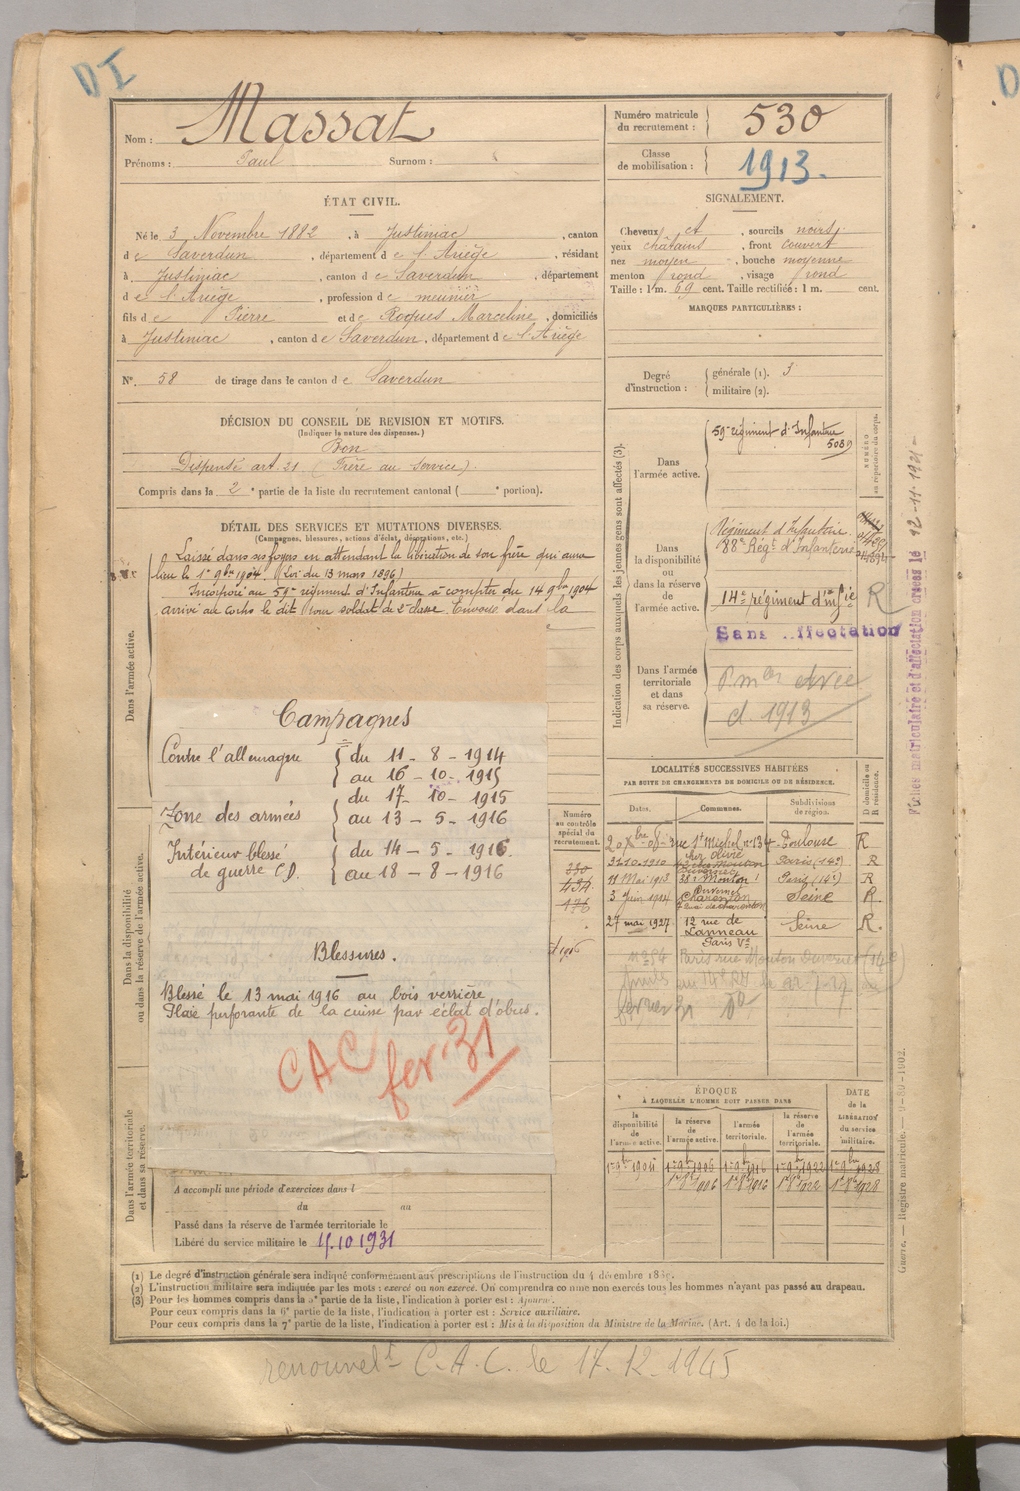 DI
Nom : Massat
Prénoms : Paul Surnom :
Numéro matricule du recrutement : 530
Classe de mobilisation : 1913.
ÉTAT CIVIL.
Né le 3 Novembre 1882, à Justiniac, canton
de Saverdun, département de l'Ariège, résidant
à Justiniac, canton de Saverdun, département
de l'Ariège, profession de meunier
fils de Pierre et de Roques Marceline, domiciliés
à Justiniac, canton de Saverdun, département de l'Ariège
N°. 58 de tirage dans le canton de Saverdun
DÉCISION DU CONSEIL DE REVISION ET MOTIFS.
(Indiquer la nature des dispenses.)
Bon
Dispensé art. 21 (Frère au service)
Compris dans la 2e partie de la liste du recrutement cantonal ( e portion).
DÉTAIL DES SERVICES ET MUTATIONS DIVERSES.
(Campagnes, blessures, actions d'éclat, décorations, etc.)
Laissé dans ses foyers en attendant la libération de son frère qui aura
lieu le 1er 9bre 1904. (Loi du 13 mars 1896)
Incorporé au 59me régiment d'Infanterie à compter du 14 9bre 1904
arrivé au corps le dit jour soldat de 2e classe. Envoyé dans la
Dans l'armée active.
Campagnes
Contre l'allemagne { du 11 - 8 - 1914
au 16 - 10 - 1915
Zone des armées { du 17 - 10 - 1915
au 13 - 5 - 1916
Intérieur blessé { du 14 - 5 - 1916
de guerre CD. au 18 - 8 - 1916
Blessures.
Blessé le 13 mai 1916 au bois verrière
Plaie perforante de la cuisse par éclat d'obus.
CAC fev. 31
Dans la disponibilité
ou dans la réserve de l'armée active.
Dans l'armée territoriale
et dans sa réserve.
Numéro au contrôle spécial du recrutement.
434
176
A accompli une période d'exercices dans l
du au
Passé dans la réserve de l'armée territoriale le
Libéré du service militaire le 15.10 1931
SIGNALEMENT.
Cheveux ct, sourcils noirs,
yeux châtains, front couvert
nez moyen, bouche moyenne
menton rond, visage rond
Taille : 1 m. 69 cent. Taille rectifiée : 1 m. cent.
MARQUES PARTICULIÈRES :
Degré d'instruction : { générale (1). 3
militaire (2).
Indication des corps auxquels les jeunes gens sont affectés (3).
NUMÉRO au répertoire du corps.
Dans l'armée active.
59me régiment d'Infanterie
5039
Dans la disponibilité ou dans la réserve de l'armée active.
Régiment d'Infanterie
88e Régt d'Infanterie
14e régiment d'infie R
Sans affectation
Dans l'armée territoriale et dans sa réserve.
cl. 1913
Fiches matriculaire et d'affectation créées le 12-11-1921
LOCALITÉS SUCCESSIVES HABITÉES
PAR SUITE DE CHANGEMENTS DE DOMICILE OU DE RÉSIDENCE.
Dates. Communes. Subdivisions de région. D domicile ou R résidence.
20 Xbre 08 rue St Michel n° 134 Toulouse R
31 10 1910 Paris (14e) R
11 Mai 1913 38 r Mouton Duvernet Paris (14e) R
3 Juin 1914 Charenton Seine R
27 mai 1927 12 rue de Lanneau Paris Ve Seine R.
Paris rue Mouton Duvernet (14e)
ÉPOQUE
À LAQUELLE L'HOMME DOIT PASSER DANS
la disponibilité de l'armée active.
la réserve de l'armée active.
l'armée territoriale.
la réserve de l'armée territoriale.
DATE de la LIBÉRATION du service militaire.
1er 9bre 1905 1er 9bre 1906 1er 9bre 1916 1er 9bre 1922 1er 9bre 1928
1er 8bre 1906 1er 8bre 1916 1er 8bre 1922 1er 8bre 1928
(1) Le degré d'instruction générale sera indiqué conformément aux prescriptions de l'instruction du 4 décembre
(2) L'instruction militaire sera indiquée par les mots : exercé ou non exercé. On comprendra comme non exercés tous les hommes n'ayant pas passé au drapeau.
(3) Pour les hommes compris dans la 5e partie de la liste, l'indication à porter est : Ajourné.
Pour ceux compris dans la 6e partie de la liste, l'indication à porter est : Service auxiliaire.
Pour ceux compris dans la 7e partie de la liste, l'indication à porter est : Mis à la disposition du Ministre de la Marine. (Art. 4 de la loi.)
Guerre. — Registre matricule. — 9-80-1902.
renouvelt C.A.C. le 17.12.1945